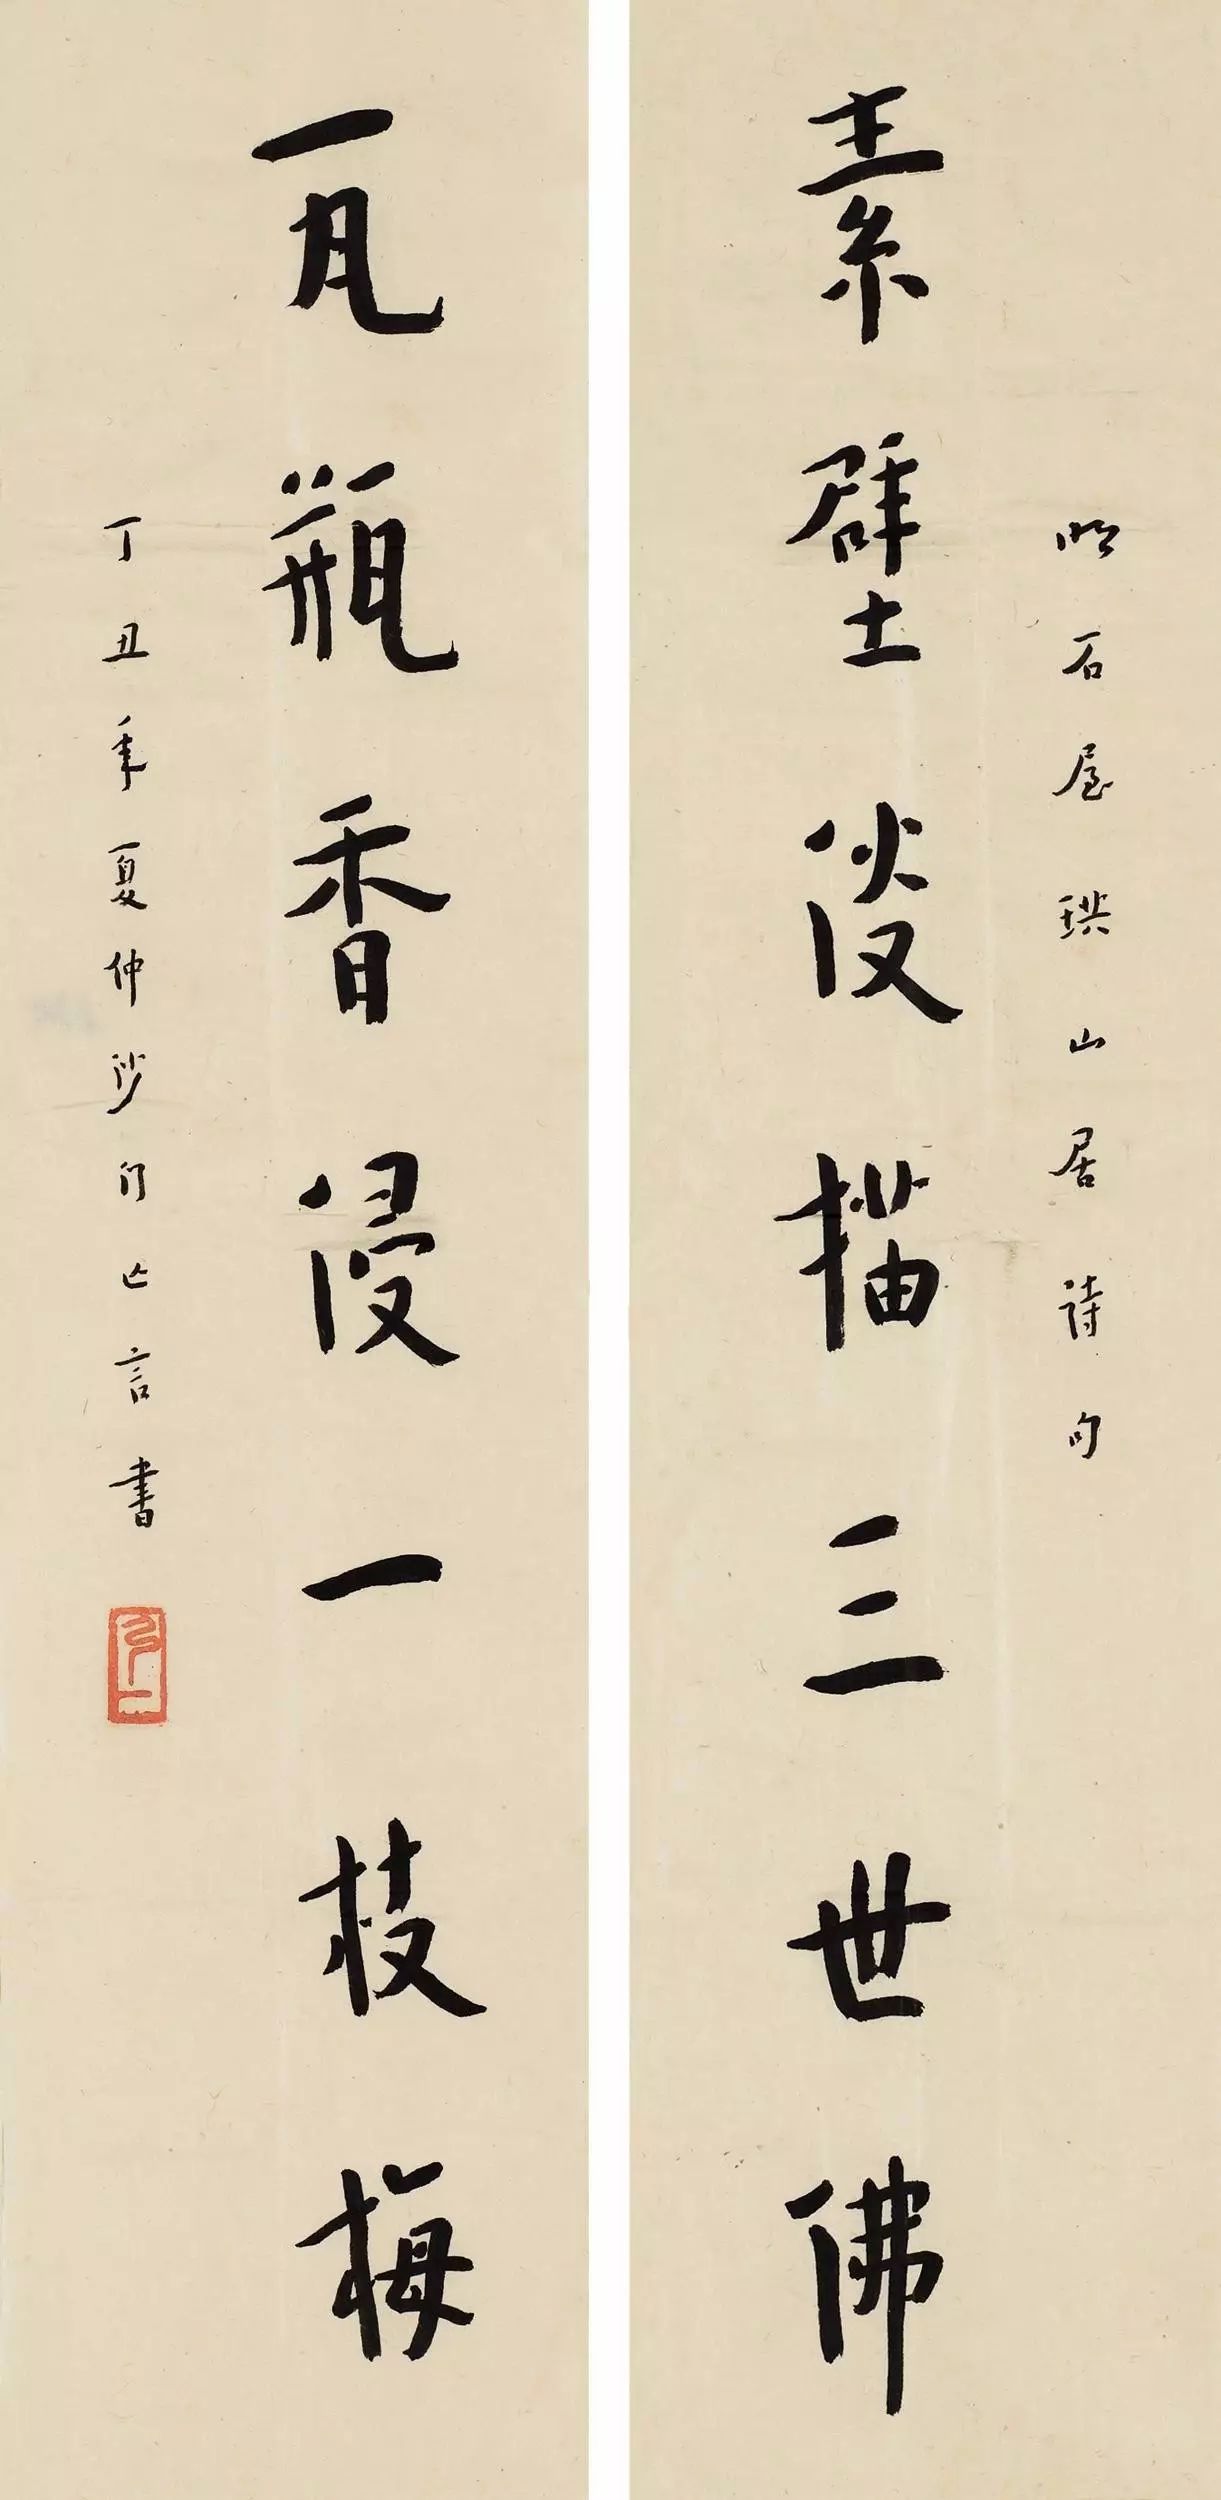 明石屋珙山居詩句
素壁淡描三世佛
瓦瓶香浸一枝梅
丁丑年夏仲沙门亡言書